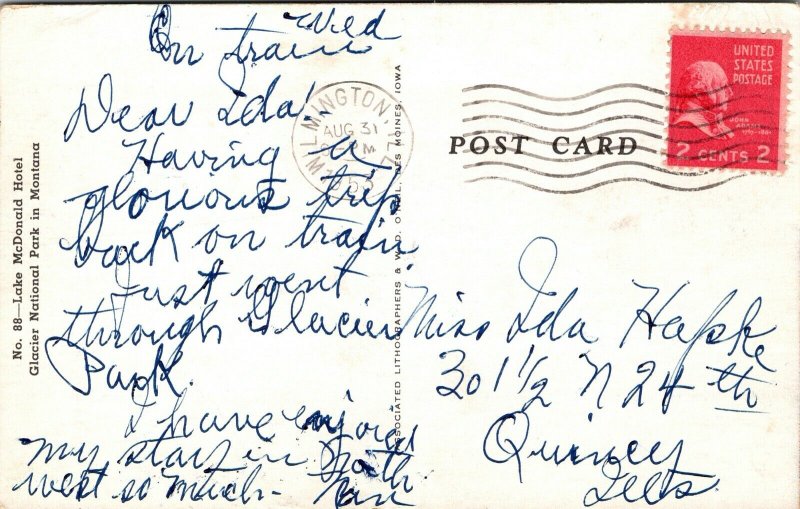 Wed
On train
Dear Ida!
Having a
glorious trip
back on train
Just went
through Glacier
Park.
I have enjoyed
my stay in North
west so much-
No. 88—Lake McDonald Hotel
Glacier National Park in Montana
ASSOCIATED LITHOGRAPHERS & DES MOINES, IOWA
WILMINGTON, ILL.
AUG 31
PM
POST CARD
UNITED
STATES
POSTAGE
JOHN ADAMS
2 CENTS 2
Miss Ida Hafske
301 1/2 N 24 th
Quincy
Ills